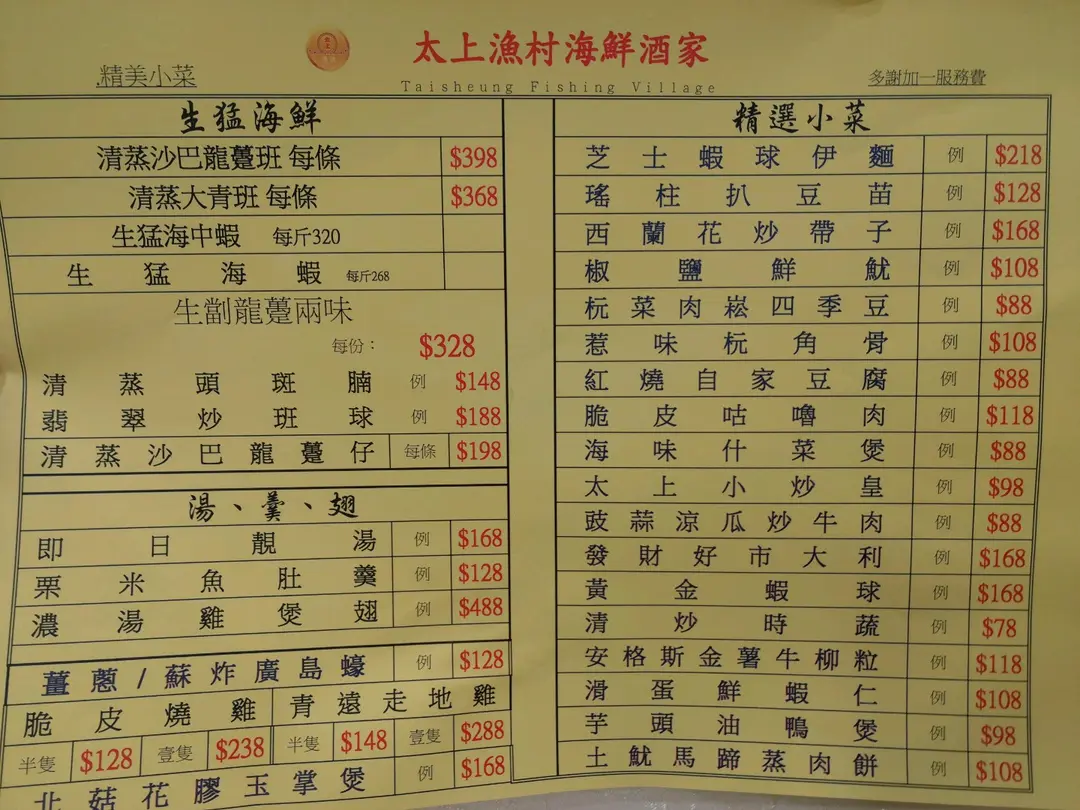 太上漁村海鮮酒家
.精美小菜
Taisheung Fishing Village
多謝加一服務費
生猛海鮮
清蒸沙巴龍躉班 每條 $398
清蒸大青班 每條 $368
生猛海中蝦 每斤320
生猛海蝦 每斤268
生劏龍躉兩味
每份： $328
清蒸頭斑腩 例 $148
翡翠炒班球 例 $188
清蒸沙巴龍躉仔 每條 $198
湯、羹、翅
即日靚湯 例 $168
栗米魚肚羹 例 $128
濃湯雞煲翅 例 $488
薑蔥/蘇炸廣島蠔 例 $128
脆皮燒雞 青遠走地雞
半隻 $128 壹隻 $238 半隻 $148 壹隻 $288
北菇花膠玉掌煲 例 $168
精選小菜
芝士蝦球伊麵 例 $218
瑤柱扒豆苗 例 $128
西蘭花炒帶子 例 $168
椒鹽鮮魷 例 $108
杬菜肉崧四季豆 例 $88
惹味杬角骨 例 $108
紅燒自家豆腐 例 $88
脆皮咕嚕肉 例 $118
海味什菜煲 例 $88
太上小炒皇 例 $98
豉蒜涼瓜炒牛肉 例 $88
發財好市大利 例 $168
黃金蝦球 例 $168
清炒時蔬 例 $78
安格斯金薯牛柳粒 例 $118
滑蛋鮮蝦仁 例 $108
芋頭油鴨煲 例 $98
土魷馬蹄蒸肉餅 例 $108